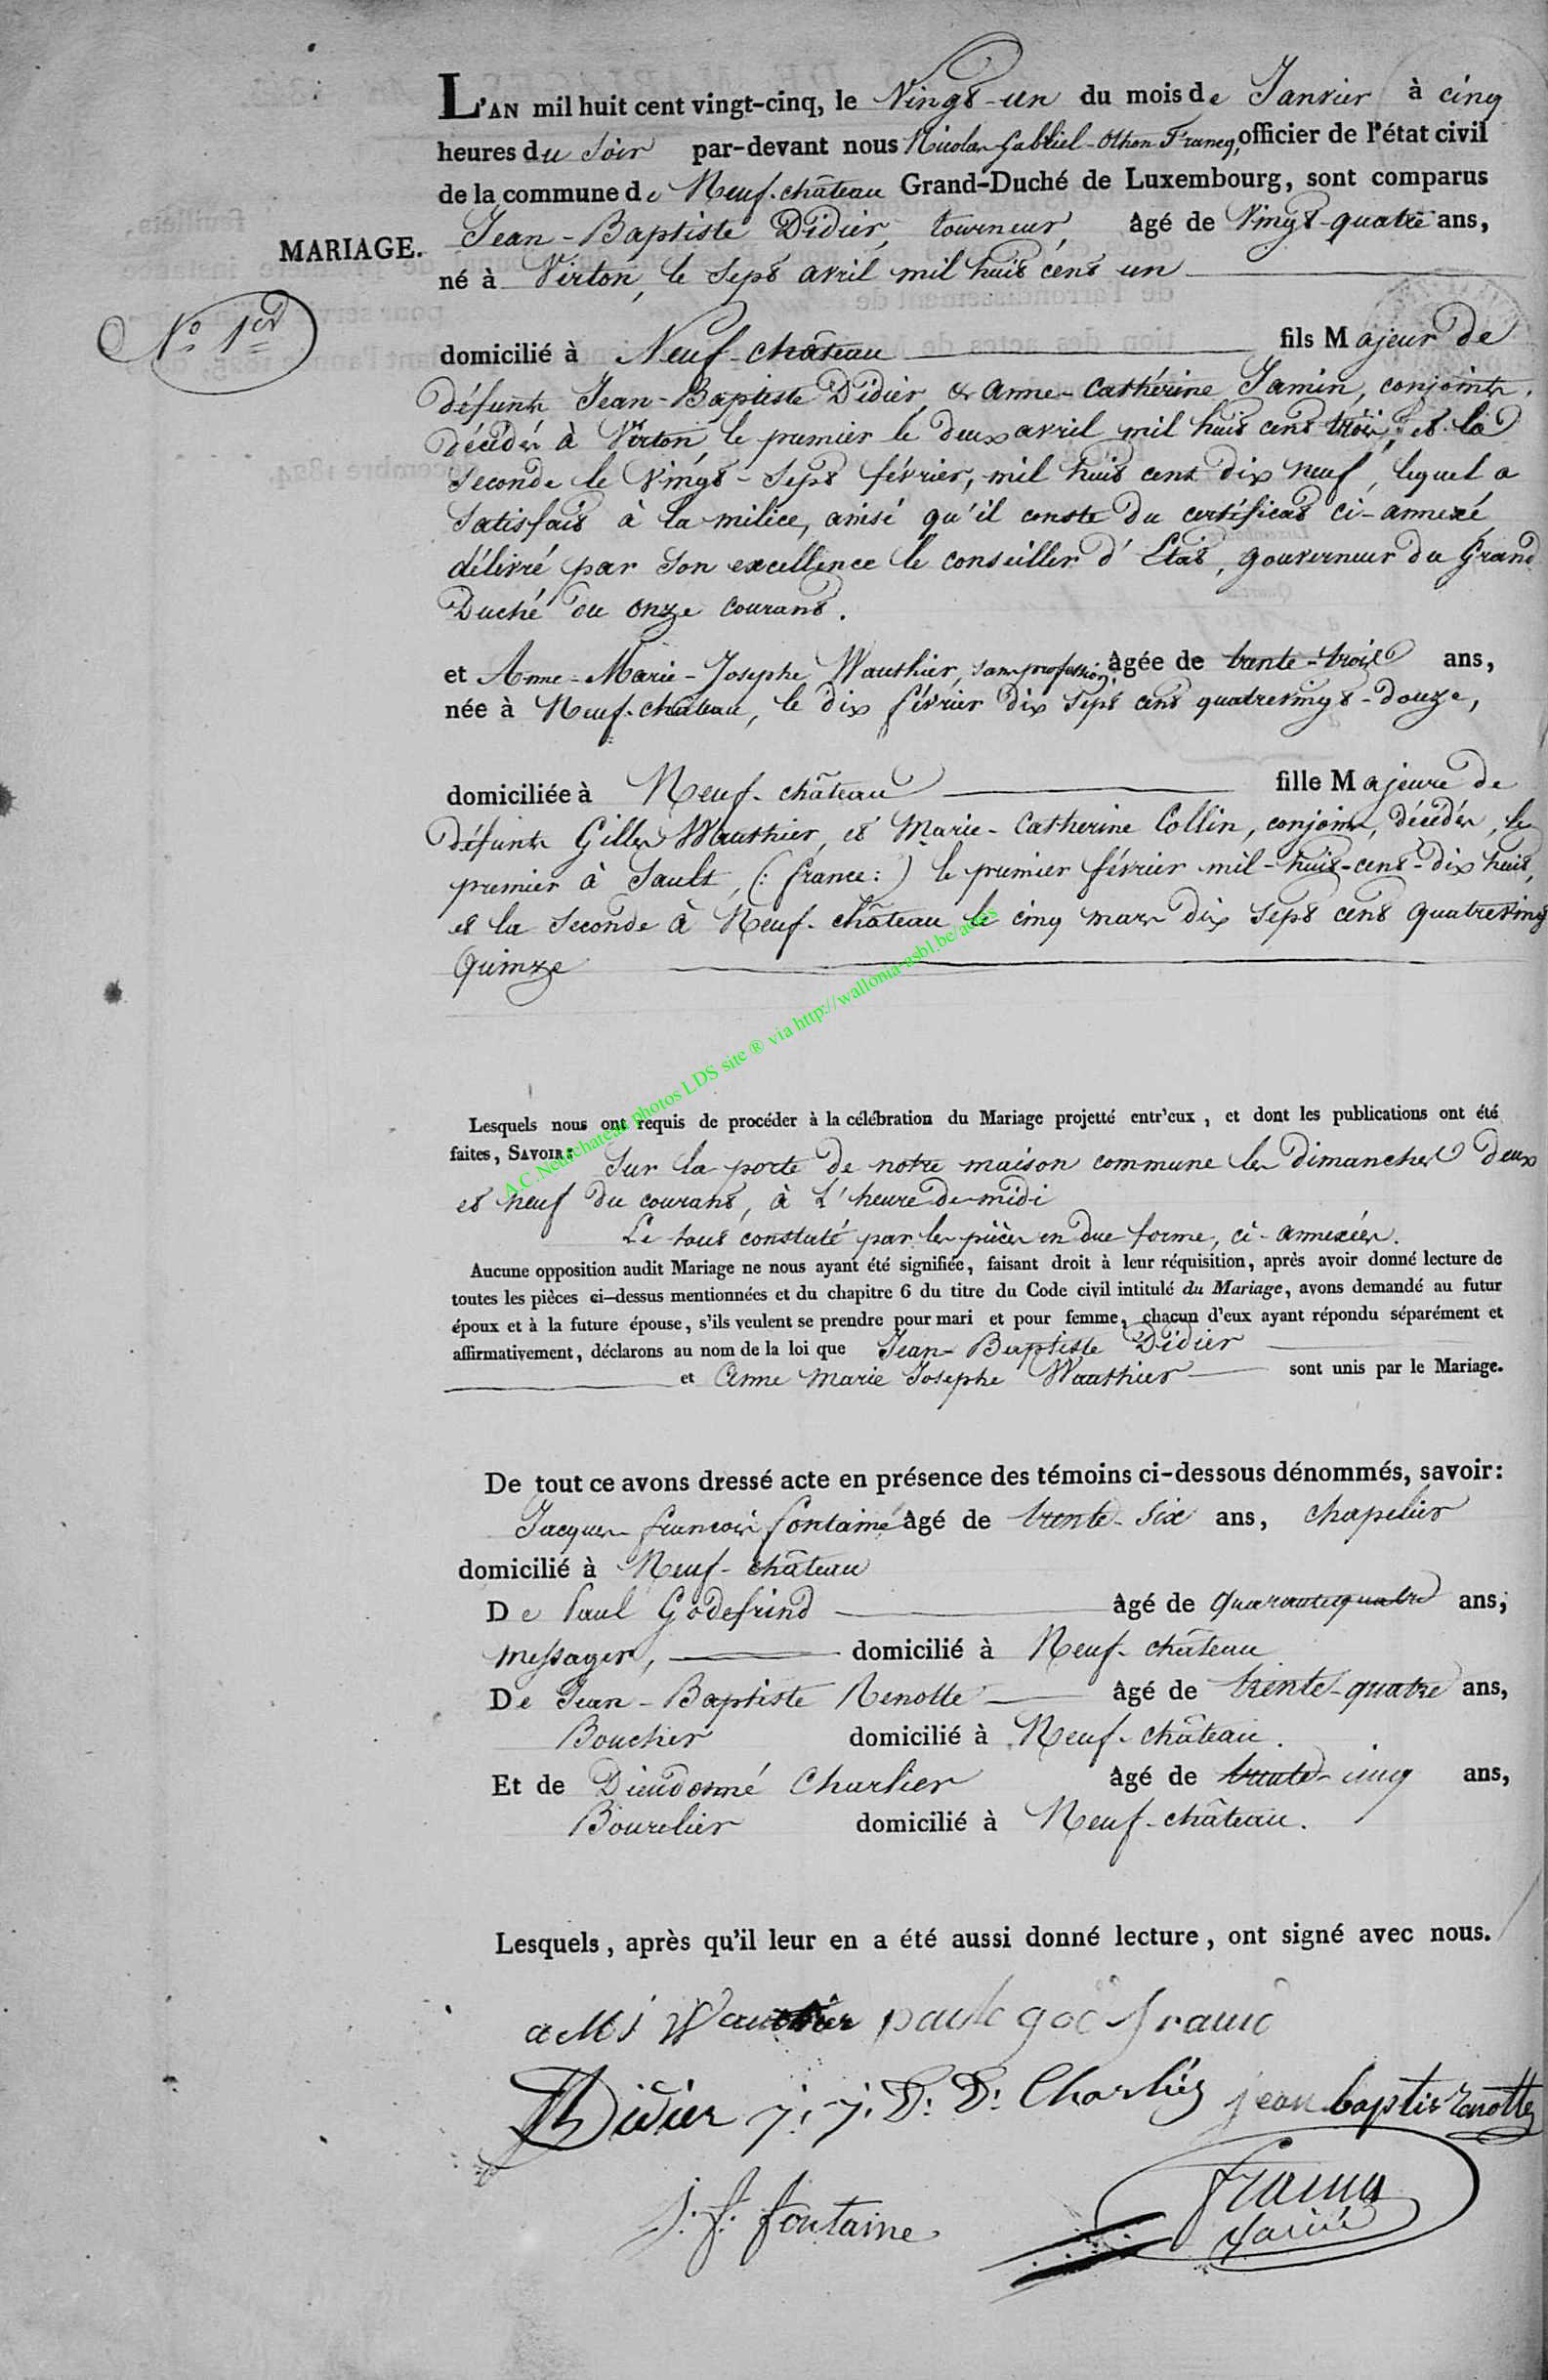 L'AN mil huit cent vingt-cinq, le Vingt-un du mois de Janvier à cinq
heures du Soir par-devant nous Nicolas-Gabriel-Othon Francq, officier de l'état civil
de la commune de Neuf-château Grand-Duché de Luxembourg, sont comparus
Jean-Baptiste Didier, tourneur, âgé de Vingt-quatre ans,
MARIAGE.
né à Virton, le Sept avril mil huit cent un
N° 1er
domicilié à Neuf-château fils Majeur de
défunts Jean-Baptiste Didier, & anne-Cathérine Jamin, conjoints,
décédés à Virton, le premier le deux avril mil huit cent trois, et la
Seconde le Vingt-Sept février, mil huit cent dix neuf, lequel a
Satisfait à la milice, ainsi qu'il conste du certificat ci-annexé
délivré par Son excellence le conseiller d'Etat, gouverneur du Grand
Duché du onze courant.
et Anne-Marie-Josephe Wauthier, sans profession, âgée de trente-trois ans,
née à Neuf-château, le dix février dix Sept cent quatrevingt-douze,
domiciliée à Neuf-château fille Majeure de
défunts Gilles Wauthier, et Marie-Catherine Collin, conjoints, décédés, le
premier à Sault, (: france :) le premier février mil-huit-cent-dix huit,
et la Seconde à Neuf-château le cinq mars dix Sept cent quatrevingt
Quinze
A.C.Neufchateau photos LDS site ® via http://wallonia-asbl.be/actes
Lesquels nous ont requis de procéder à la célébration du Mariage projetté entr'eux, et dont les publications ont été
faites, SAVOIR: Sur la porte de notre maison commune les dimanches deux
et neuf du courant, à l'heure de midi
Le tout constaté par les pièces en due forme, ci-annexées.
Aucune opposition audit Mariage ne nous ayant été signifiée, faisant droit à leur réquisition, après avoir donné lecture de
toutes les pièces ci-dessus mentionnées et du chapitre 6 du titre du Code civil intitulé du Mariage, avons demandé au futur
époux et à la future épouse, s'ils veulent se prendre pour mari et pour femme, chacun d'eux ayant répondu séparément et
affirmativement, déclarons au nom de la loi que Jean-Baptiste Didier
et Anne Marie Josephe Wauthier sont unis par le Mariage.
De tout ce avons dressé acte en présence des témoins ci-dessous dénommés, savoir:
Jacques françois fontaine âgé de trente-Six ans, chapelier
domicilié à Neuf-château
De Paul Godefrind âgé de Quarantequatre ans;
messager, domicilié à Neuf-château
De Jean-Baptiste Renotte âgé de trente-quatre ans,
Boucher domicilié à Neuf-château.
Et de Dieudonné Charlier âgé de trente-cinq ans,
Bourelier domicilié à Neuf-château.
Lesquels, après qu'il leur en a été aussi donné lecture, ont signé avec nous.
a M j Wauthier
Didier j. j. D: D: Charlier jean baptis Renotte
j: f: fontaine Francq